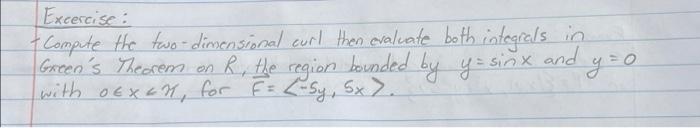 Excercise:
- Compute the two-dimensional curl then evaluate both integrals in
Green's Theorem on R, the region bounded by y = sin x and y = 0
with 0 ≤ x ≤ π, for F = <-5y, 5x>.